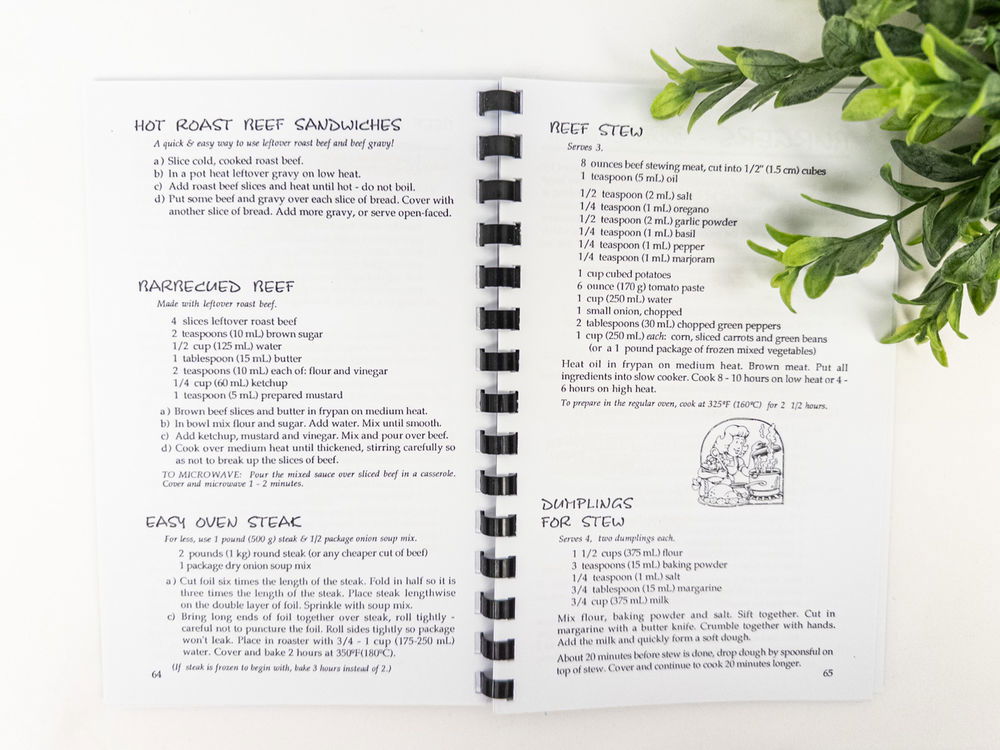 HOT ROAST BEEF SANDWICHES
A quick & easy way to use leftover roast beef and beef gravy!
a) Slice cold, cooked roast beef.
b) In a pot heat leftover gravy on low heat.
c) Add roast beef slices and heat until hot - do not boil.
d) Put some beef and gravy over each slice of bread. Cover with
another slice of bread. Add more gravy, or serve open-faced.
BARBECUED BEEF
Made with leftover roast beef.
4 slices leftover roast beef
2 teaspoons (10 mL) brown sugar
1/2 cup (125 mL) water
1 tablespoon (15 mL) butter
2 teaspoons (10 mL) each of: flour and vinegar
1/4 cup (60 mL) ketchup
1 teaspoon (5 mL) prepared mustard
a) Brown beef slices and butter in frypan on medium heat.
b) In bowl mix flour and sugar. Add water. Mix until smooth.
c) Add ketchup, mustard and vinegar. Mix and pour over beef.
d) Cook over medium heat until thickened, stirring carefully so
as not to break up the slices of beef.
TO MICROWAVE: Pour the mixed sauce over sliced beef in a casserole.
Cover and microwave 1 - 2 minutes.
EASY OVEN STEAK
For less, use 1 pound (500 g) steak & 1/2 package onion soup mix.
2 pounds (1 kg) round steak (or any cheaper cut of beef)
1 package dry onion soup mix
a) Cut foil six times the length of the steak. Fold in half so it is
three times the length of the steak. Place steak lengthwise
on the double layer of foil. Sprinkle with soup mix.
c) Bring long ends of foil together over steak, roll tightly -
careful not to puncture the foil. Roll sides tightly so package
won't leak. Place in roaster with 3/4 - 1 cup (175-250 mL)
water. Cover and bake 2 hours at 350ºF(180ºC).
(If steak is frozen to begin with, bake 3 hours instead of 2.)
64
BEEF STEW
Serves 3.
8 ounces beef stewing meat, cut into 1/2" (1.5 cm) cubes
1 teaspoon (5 mL) oil
1/2 teaspoon (2 mL) salt
1/4 teaspoon (1 mL) oregano
1/2 teaspoon (2 mL) garlic powder
1/4 teaspoon (1 mL) basil
1/4 teaspoon (1 mL) pepper
1/4 teaspoon (1 mL) marjoram
1 cup cubed potatoes
6 ounce (170 g) tomato paste
1 cup (250 mL) water
1 small onion, chopped
2 tablespoons (30 mL) chopped green peppers
1 cup (250 mL) each: corn, sliced carrots and green beans
(or a 1 pound package of frozen mixed vegetables)
Heat oil in frypan on medium heat. Brown meat. Put all
ingredients into slow cooker. Cook 8 - 10 hours on low heat or 4 -
6 hours on high heat.
To prepare in the regular oven, cook at 325ºF (160ºC) for 2 1/2 hours.
DUMPLINGS
FOR STEW
Serves 4, two dumplings each.
1 1/2 cups (375 mL) flour
3 teaspoons (15 mL) baking powder
1/4 teaspoon (1 mL) salt
3/4 tablespoon (15 mL) margarine
3/4 cup (375 mL) milk
Mix flour, baking powder and salt. Sift together. Cut in
margarine with a butter knife. Crumble together with hands.
Add the milk and quickly form a soft dough.
About 20 minutes before stew is done, drop dough by spoonsful on
top of stew. Cover and continue to cook 20 minutes longer.
65